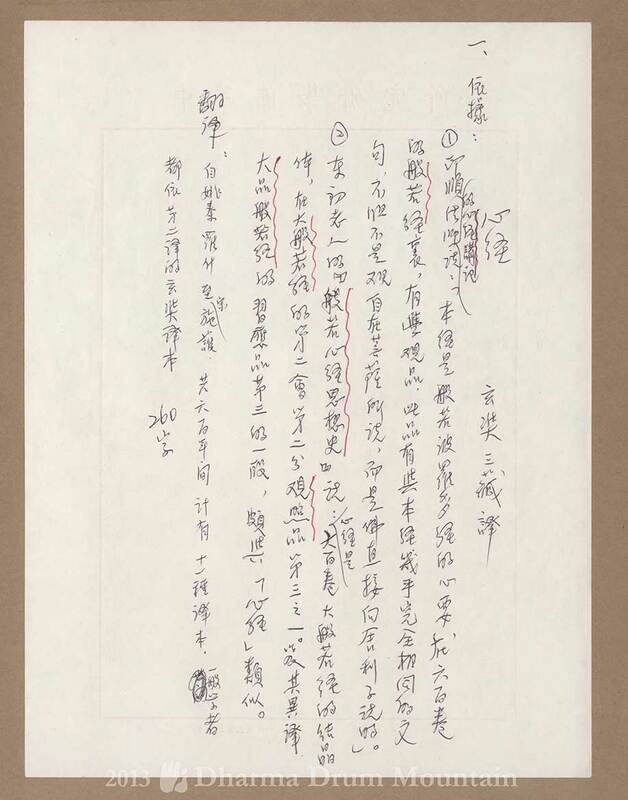 心経
玄奘三藏譯
一、依據：
①印順法師的心経講記說：「本経是般若波羅多経的心要，在六百卷
的般若経裏，有學觀品，此品有與本経幾乎完全相同的文
句，不但不是觀自在菩薩所說，而是佛直接向舍利子說的。」
②東初老人的「般若心経思想史」說：心経是六百卷大般若経的結晶
体，在大般若経的第二會第二分觀照品第三之一。以及其異譯，
大品般若経的習應品第三的一段，頗與「心経」類似。
翻译：自姚秦羅什至宋施護，共六百年间計有十一種译本，一般學者
都依第二译的玄奘译本
260字
2013 Dharma Drum Mountain